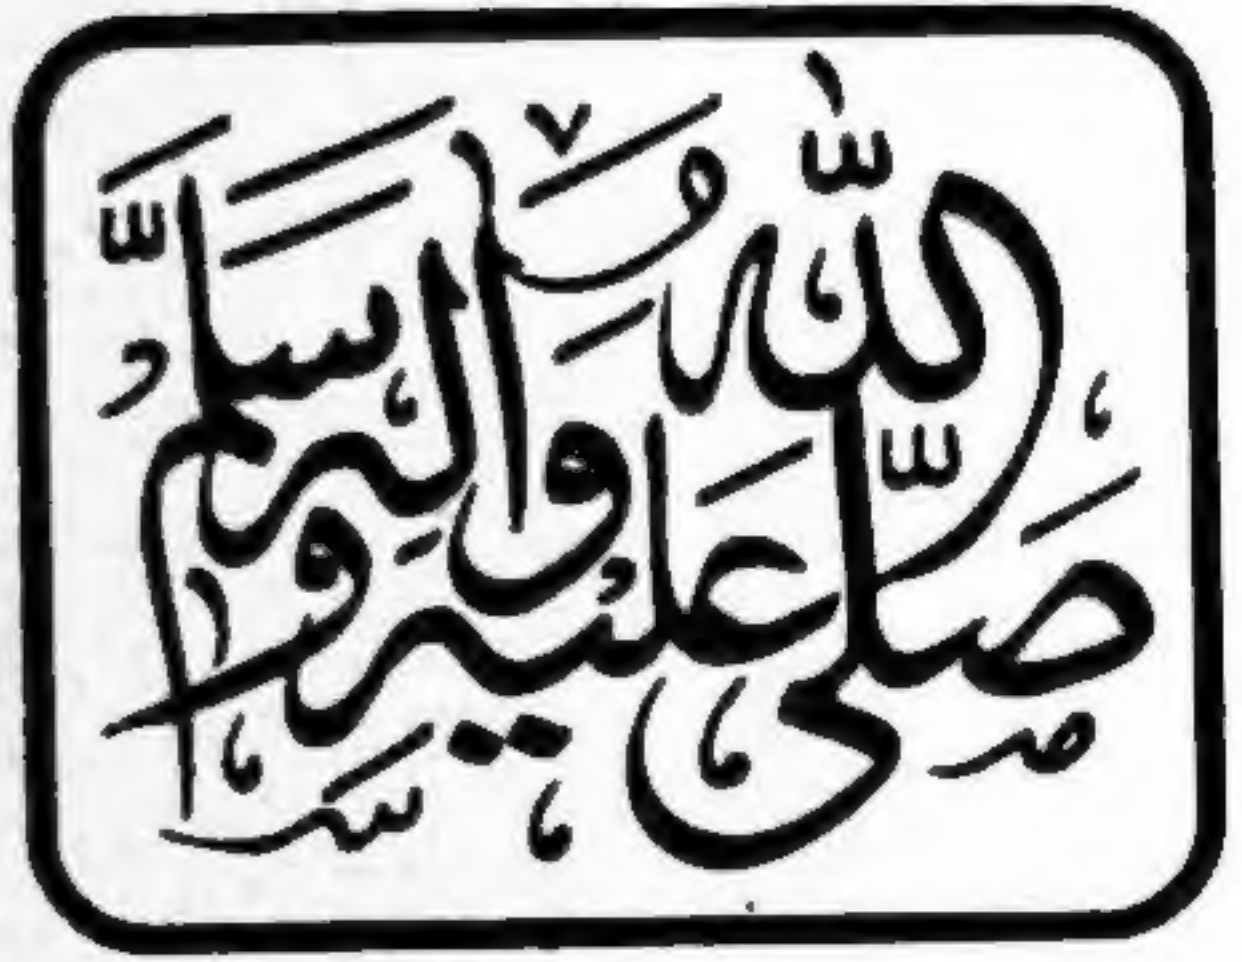 صَلَّى اللّٰه عَلَيْهِ وَاٰلِهِ وَسَلَّمَ